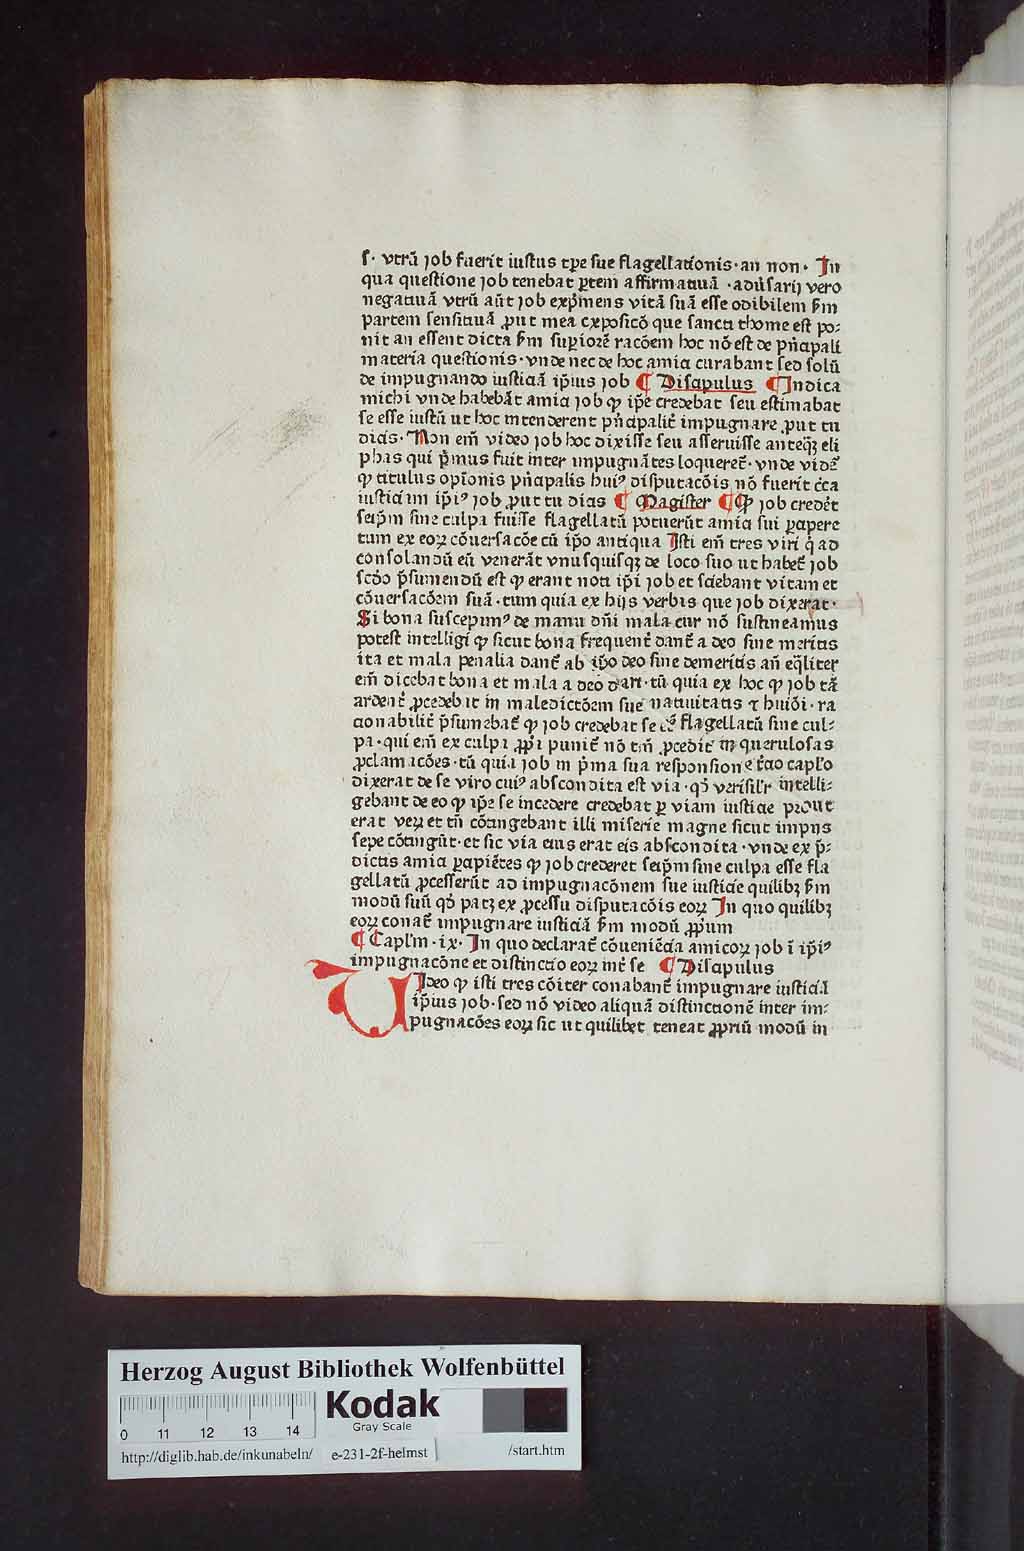 s· vtrū ȷob fuerit iustus tp̄e sue flagellationis·an non· In
qua questione ȷob tenebat ꝑtem affirmatiuā ·adūsarij vero
negatiuā vtrū aūt ȷob exp̄mens vitā suā esse odibilem ẜm
partem sensitiuā ꝓut mea exposicō que sancti thome est po⸗
nit an essent dicta ẜm suꝑiorē racōem hoc nō est de pn̄cipali
materia questionis·vnde nec de hoc amici curabant sed solū
de impugnando iusticiā ip̄ius ȷob ¶ Discipulus ¶ Indica
michi vnde habebāt amici ȷob ꝙ ip̄e credebat seu estimabat
se esse iustū ut hoc intenderent pn̄cipalit̄ impugnare ꝓut tu
dicis· Non em̄ video ȷob hoc dixisse seu asseruisse anteqꝫ eli
phas qui p̄mus fuit inter impugnātes loqueret̄·vnde videt̄
ꝙ titulus opīonis pn̄cipalis huiꝰ disputacōis nō fuerit c̄ca
iusticiam ip̄iꝰ ȷob ꝓut tu dicis ¶ Magister ¶ Ꝙ ȷob crederet̄
seip̄m sine culpa fuisse flagellatū potuerūt amici sui ꝑcipere
tum ex eoꝝ cōuersacōe cū ip̄o antiqua Isti em̄ tres viri q̄ ad
consolandū eū venerāt vnusquisqꝫ de loco suo ut habet̄ ȷob
scd̄o p̄sumendū est ꝙ erant noti ip̄i ȷob et sciebant vitam et
cōuersacōem suā·tum quia ex hijs verbis que ȷob dixerat·
Si bona suscepimꝰ de manu dn̄i mala cur nō sustineamus
potest intelligi ꝙ sicut bona frequent̄ dant̄ a deo sine meritis
ita et mala penalia dant̄ ab ip̄o deo sine demeritis añ eq̄liter
em̄ dicebat bona et mala a deo dari·tū quia ex hoc ꝙ ȷob tā
ardent̄ ꝓcedebat in maledictōem sue natiuitatis ⁊ huiōi·ra
cionabilit̄ p̄sumebat̄ ꝙ ȷob credebat se eē flagellatū sine cul⸗
pa·qui em̄ ex culpa ꝓp̄a punit̄ nō tm̄ ꝓcedit in querulosas
ꝓclamacōes·tū quia ȷob in p̄ma sua responsione t̄cio capl̓o
dixerat de se viro cuiꝰ abscondita est via·qd̓ verisil̓r intelli⸗
gebant de eo ꝙ ip̄e se incedere credebat ꝑ viam iusticie prout
erat veꝝ et tn̄ cōtingebant illi miserie magne sicut impijs
sepe cōtingūt·et sic via eius erat eis abscondita·vnde ex p̄⸗
dictis amici ꝑcipiētes ꝙ ȷob crederet seip̄m sine culpa esse fla
gellatū ꝓcesserūt ad impugnacōnem sue iusticie quilibꝫ ẜm
modū suū qd̓ patꝫ ex ꝓcessu disputacōis eoꝝ In quo quilibꝫ
eoꝝ conat̄ impugnare iusticiā ẜm modū ꝓpriū
¶ Capl̓m·ix· In quo declarat̄ cōueniēcia amicoꝝ ȷob ī ip̄iꝰ
impugnacōne et distinctio eoꝝ int̄ se ¶ Discipulus
VIdeo ꝙ isti tres cōiter conabant̄ impugnare iusticiā
ip̄ius ȷob·sed nō video aliquā distinctionē inter im⸗
pugnacōes eoꝝ sic ut quilibet teneat ꝓpriū modū in
Herzog August Bibliothek Wolfenbüttel
Kodak
Gray Scale
0 11 12 13 14
http://diglib.hab.de/inkunabeln/ e-231-2f-helmst /start.htm